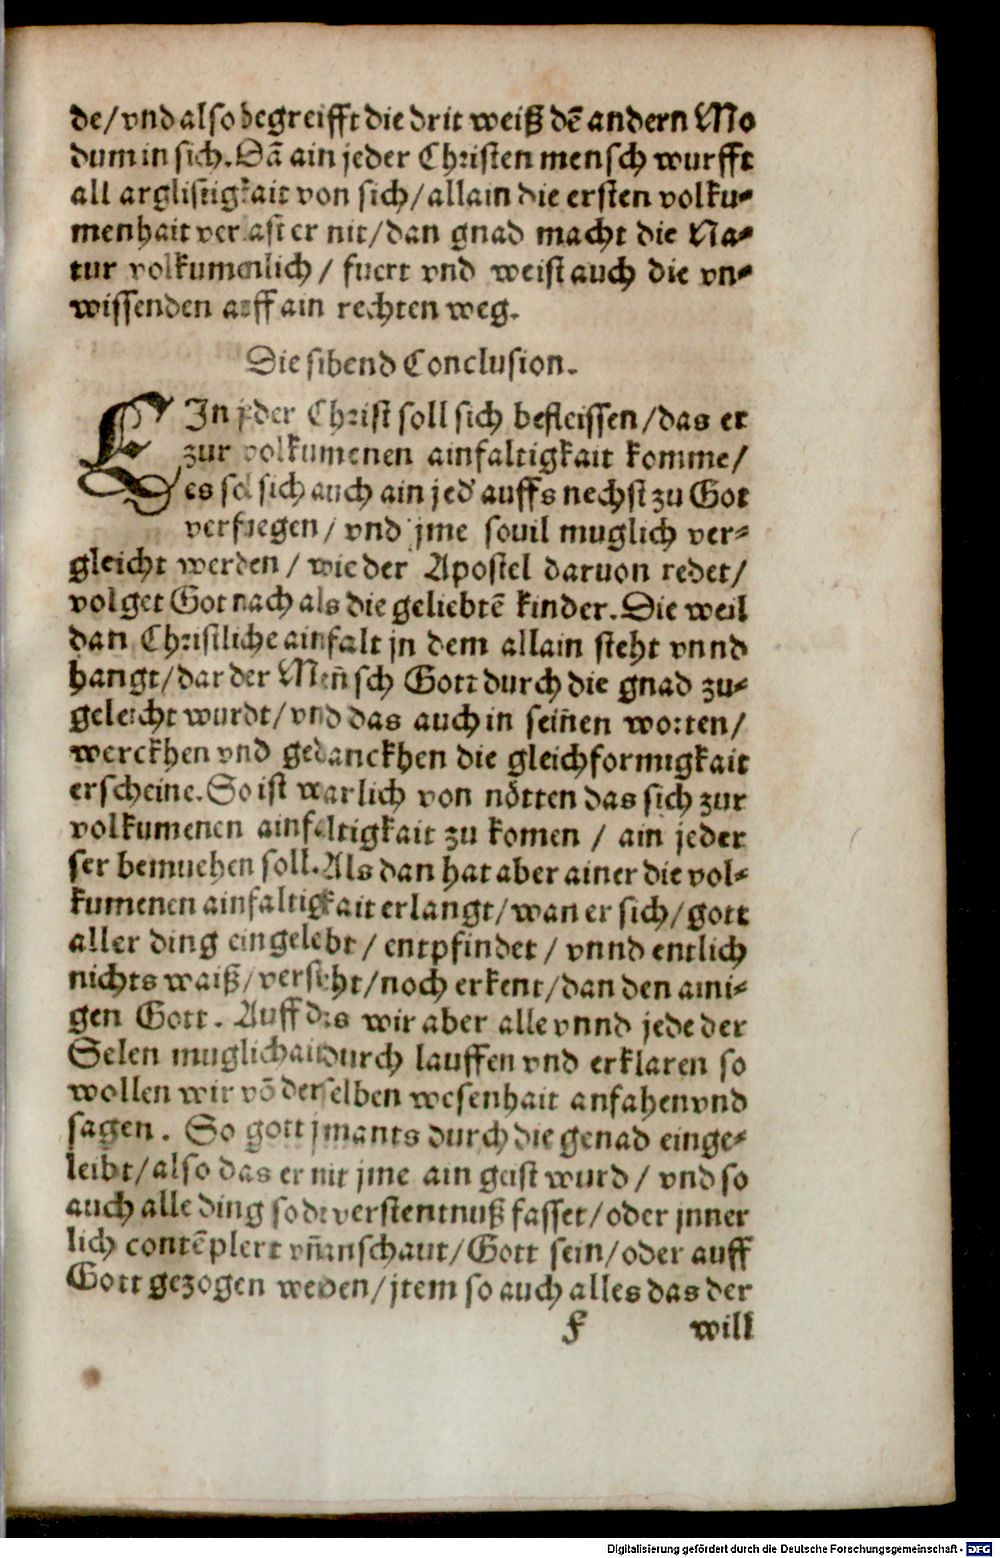 de/vnd also begreifft die drit weiß dē andern Mo
dum in sich. Dā ain jeder Christen mensch wurfft
all arglistigkait von sich/allain die ersten volku⸗
menhait verlast er nit/dan gnad macht die Na⸗
tur volkumenlich/ fuert vnd weist auch die vn⸗
wissenden auff ain rechten weg.
Die sibend Conclusion.
EIn jeder Christ soll sich befleissen/das er
zur volkumenen ainfaltigkait komme/
es sol sich auch ain jed' auffs nechst zu Got
verfuegen/ vnd jme souil muglich ver⸗
gleicht werden/ wie der Apostel daruon redet/
volget Got nach als die geliebtē kinder. Die weil
dan Christliche ainfalt jn dem allain steht vnnd
hangt/dar der Men̄sch Gott durch die gnad zu⸗
geleicht wurdt/vnd das auch in sein̄en worten/
werckhen vnd gedanckhen die gleichformigkait
erscheine. So ist warlich von nötten das sich zur
volkumenen ainfaltigkait zu komen/ ain jeder
ser bemuehen soll. Als dan hat aber ainer die vol⸗
kumenen ainfaltigkait erlangt/wan er sich/gott
aller ding eingelebt/ entpfindet/ vnnd entlich
nichts waiß/versteht/noch erkent/dan den aini⸗
gen Gott. Auff das wir aber alle vnnd jede der
Selen muglichait durch lauffen vnd erklaren so
wollen wir vō derselben wesenhait anfahen vnd
sagen. So gott jmants durch die genad einge⸗
leibt/also das er mit jme ain geist wurd/ vnd so
auch alle ding so die verstentnuß fasset/oder jnner
lich contēplert vn̄ anschaut/Gott sein/oder auff
Gott gezogen weden/jtem so auch alles das der
f will
Digitalisierung gefördert durch die Deutsche Forschungsgemeinschaft - DFG